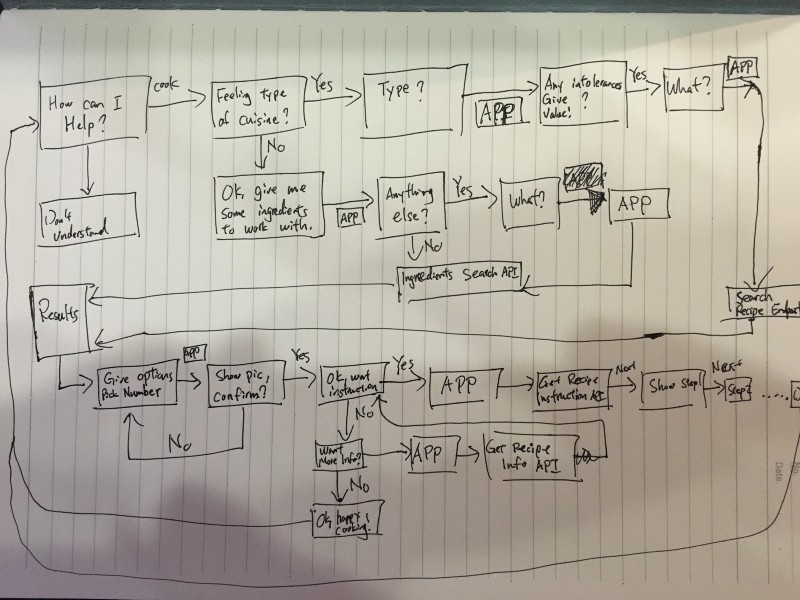 How can I
Help?
cook
Feeling type
of cuisine?
Yes
Type?
APP
Any intolerances
Give
Value!
?
Yes
What?
APP
No
Don't
understand
Ok, give me
some ingredients
to work with.
APP
Anything
else?
Yes
What?
APP
No
Ingredients Search API
Search
Recipe Endpoint
Results
Give options
Pick Number
APP
Show pic,
confirm?
Yes
Ok, want
instruction
Yes
APP
Get Recipe
Instruction API
Next
Show Step1
Next
Step2
......
No
No
Want
More Info?
APP
Get Recipe
Info API
No
Ok, happy
cooking.
No.
Date.